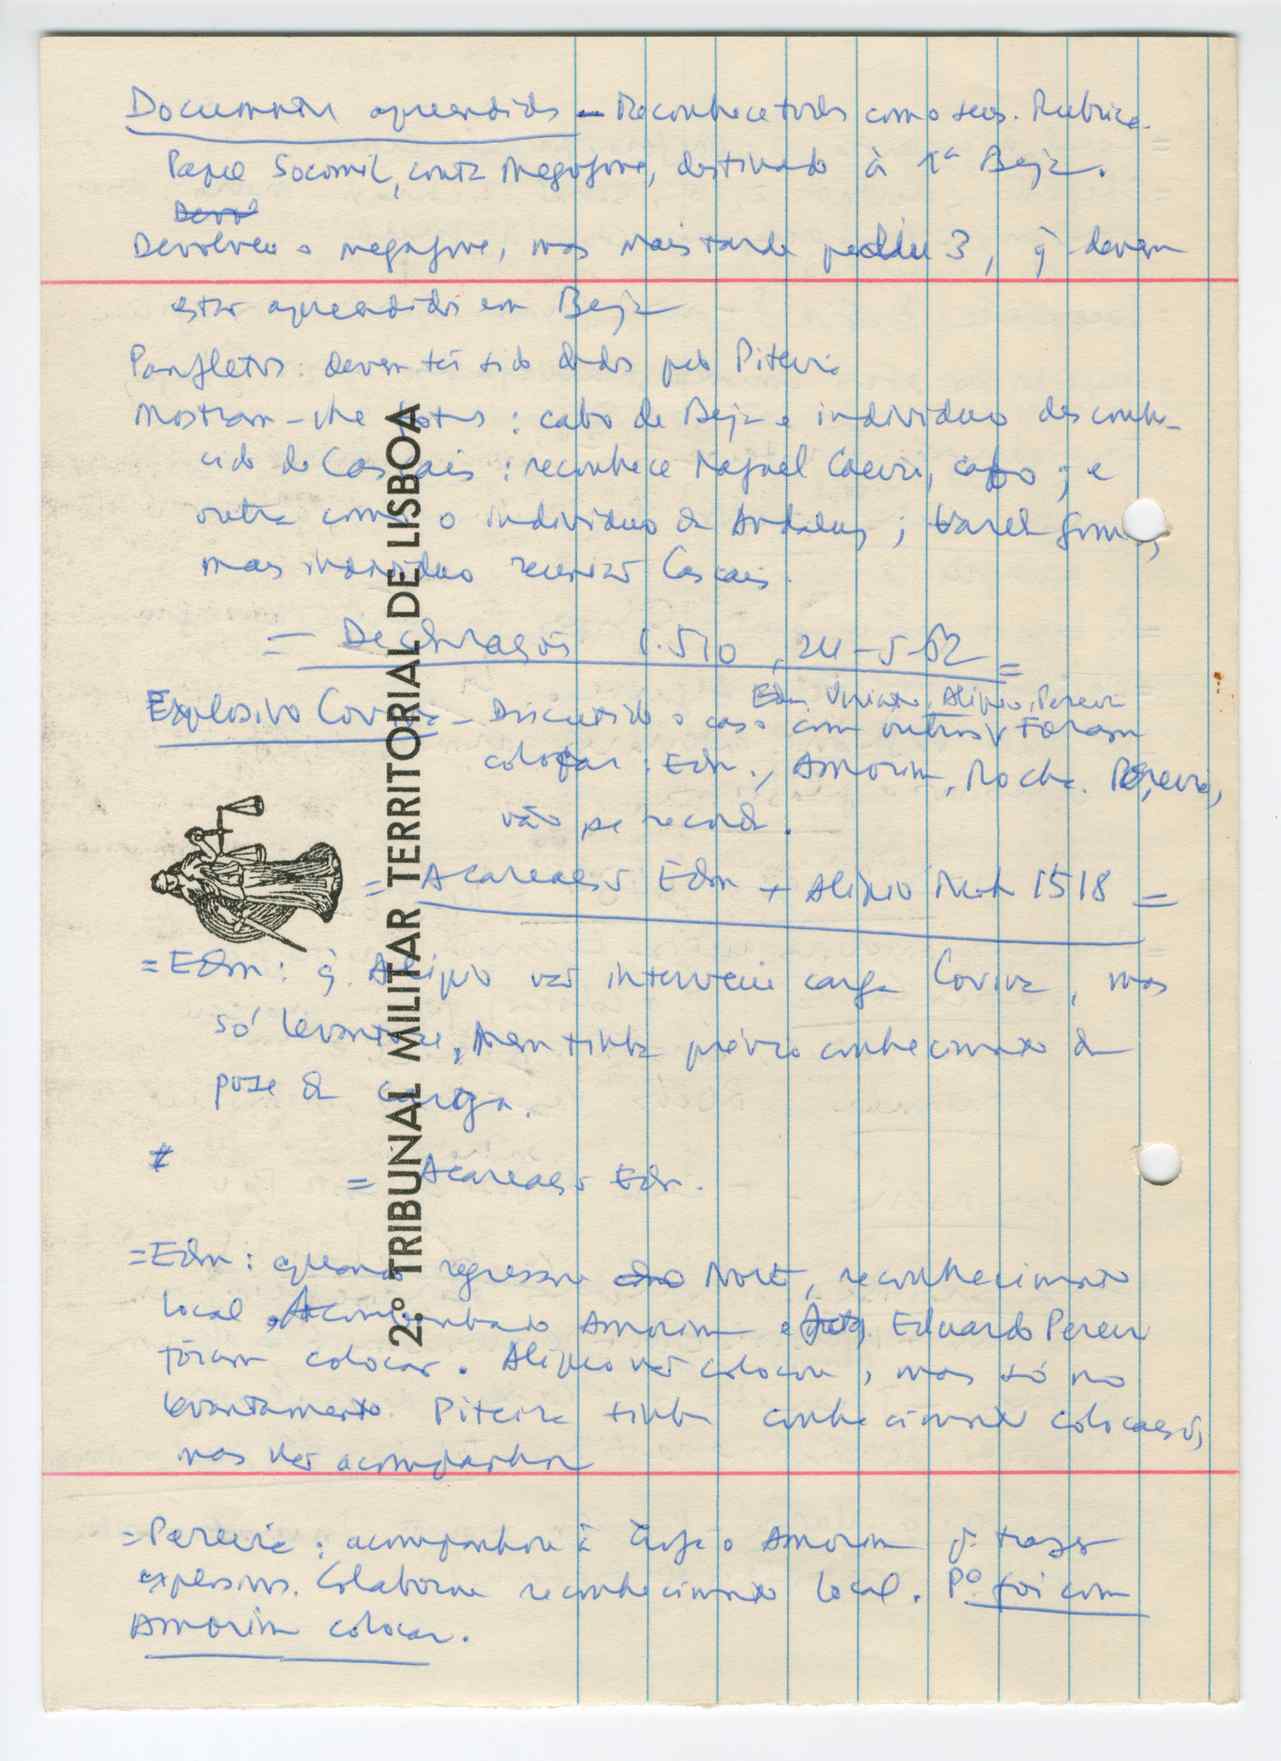 Documentos apreendidos - Reconhece todos como seus. Rubrica.
Papel Socomil, conta megafone, destinado à 1ª Beja.
Devol
Devolveu o megafone, mas mais tarde pediu 3, q̃ devem
estar apreendidos em Beja
Panfletos: devem ter sido dados pelo Piteira
Mostram-lhe fotos: cabo de Beja e individuo desconhe-
cido de Cascais: reconhece Manuel, cabo; e
outra como o individuo de Andaluz; Varela Gomes,
mas individuo reunião Cascais.
= Declarações 1.510, 24-5-62 =
Edm, Alipio, Pereira
Explosivo Covina - Discutido o caso com outros Foram
colocar: Edm., Amorim, Rocha. Pereira,
não se recorda.
= Acareação Edm + Alipio Rocha 1518 =
= Edm: q̃ Alipio não interveio carga Covina, mas
só levantou, nem tinha prévio conhecimento da
pose da carga.
= Acareação Edm.
= Edm: quando regressou do Norte, reconhecimento
local. Acompanhado Amorim e Eduardo Pereira
foram colocar. Alipio não colocou, mas só no
levantamento. Piteira tinha conhecimento colocação,
mas não acompanhou
= Pereira: acompanhou à o Amorim p. trazer
Colaborou reconhecimento local. Pº foi com
Amorim colocar.
2.º TRIBUNAL MILITAR TERRITORIAL DE LISBOA